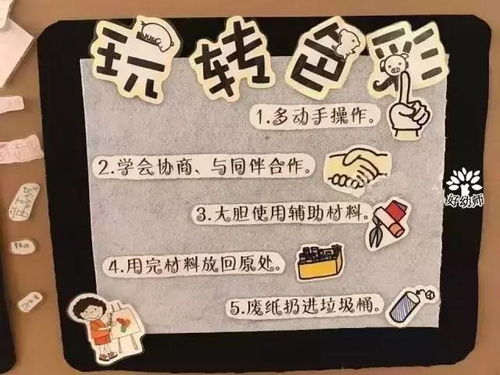 玩转色彩
1.多动手操作。
2.学会协商、与同伴合作。
3.大胆使用辅助材料。
好幼师
4.用完材料放回原处。
5.废纸扔进垃圾桶。